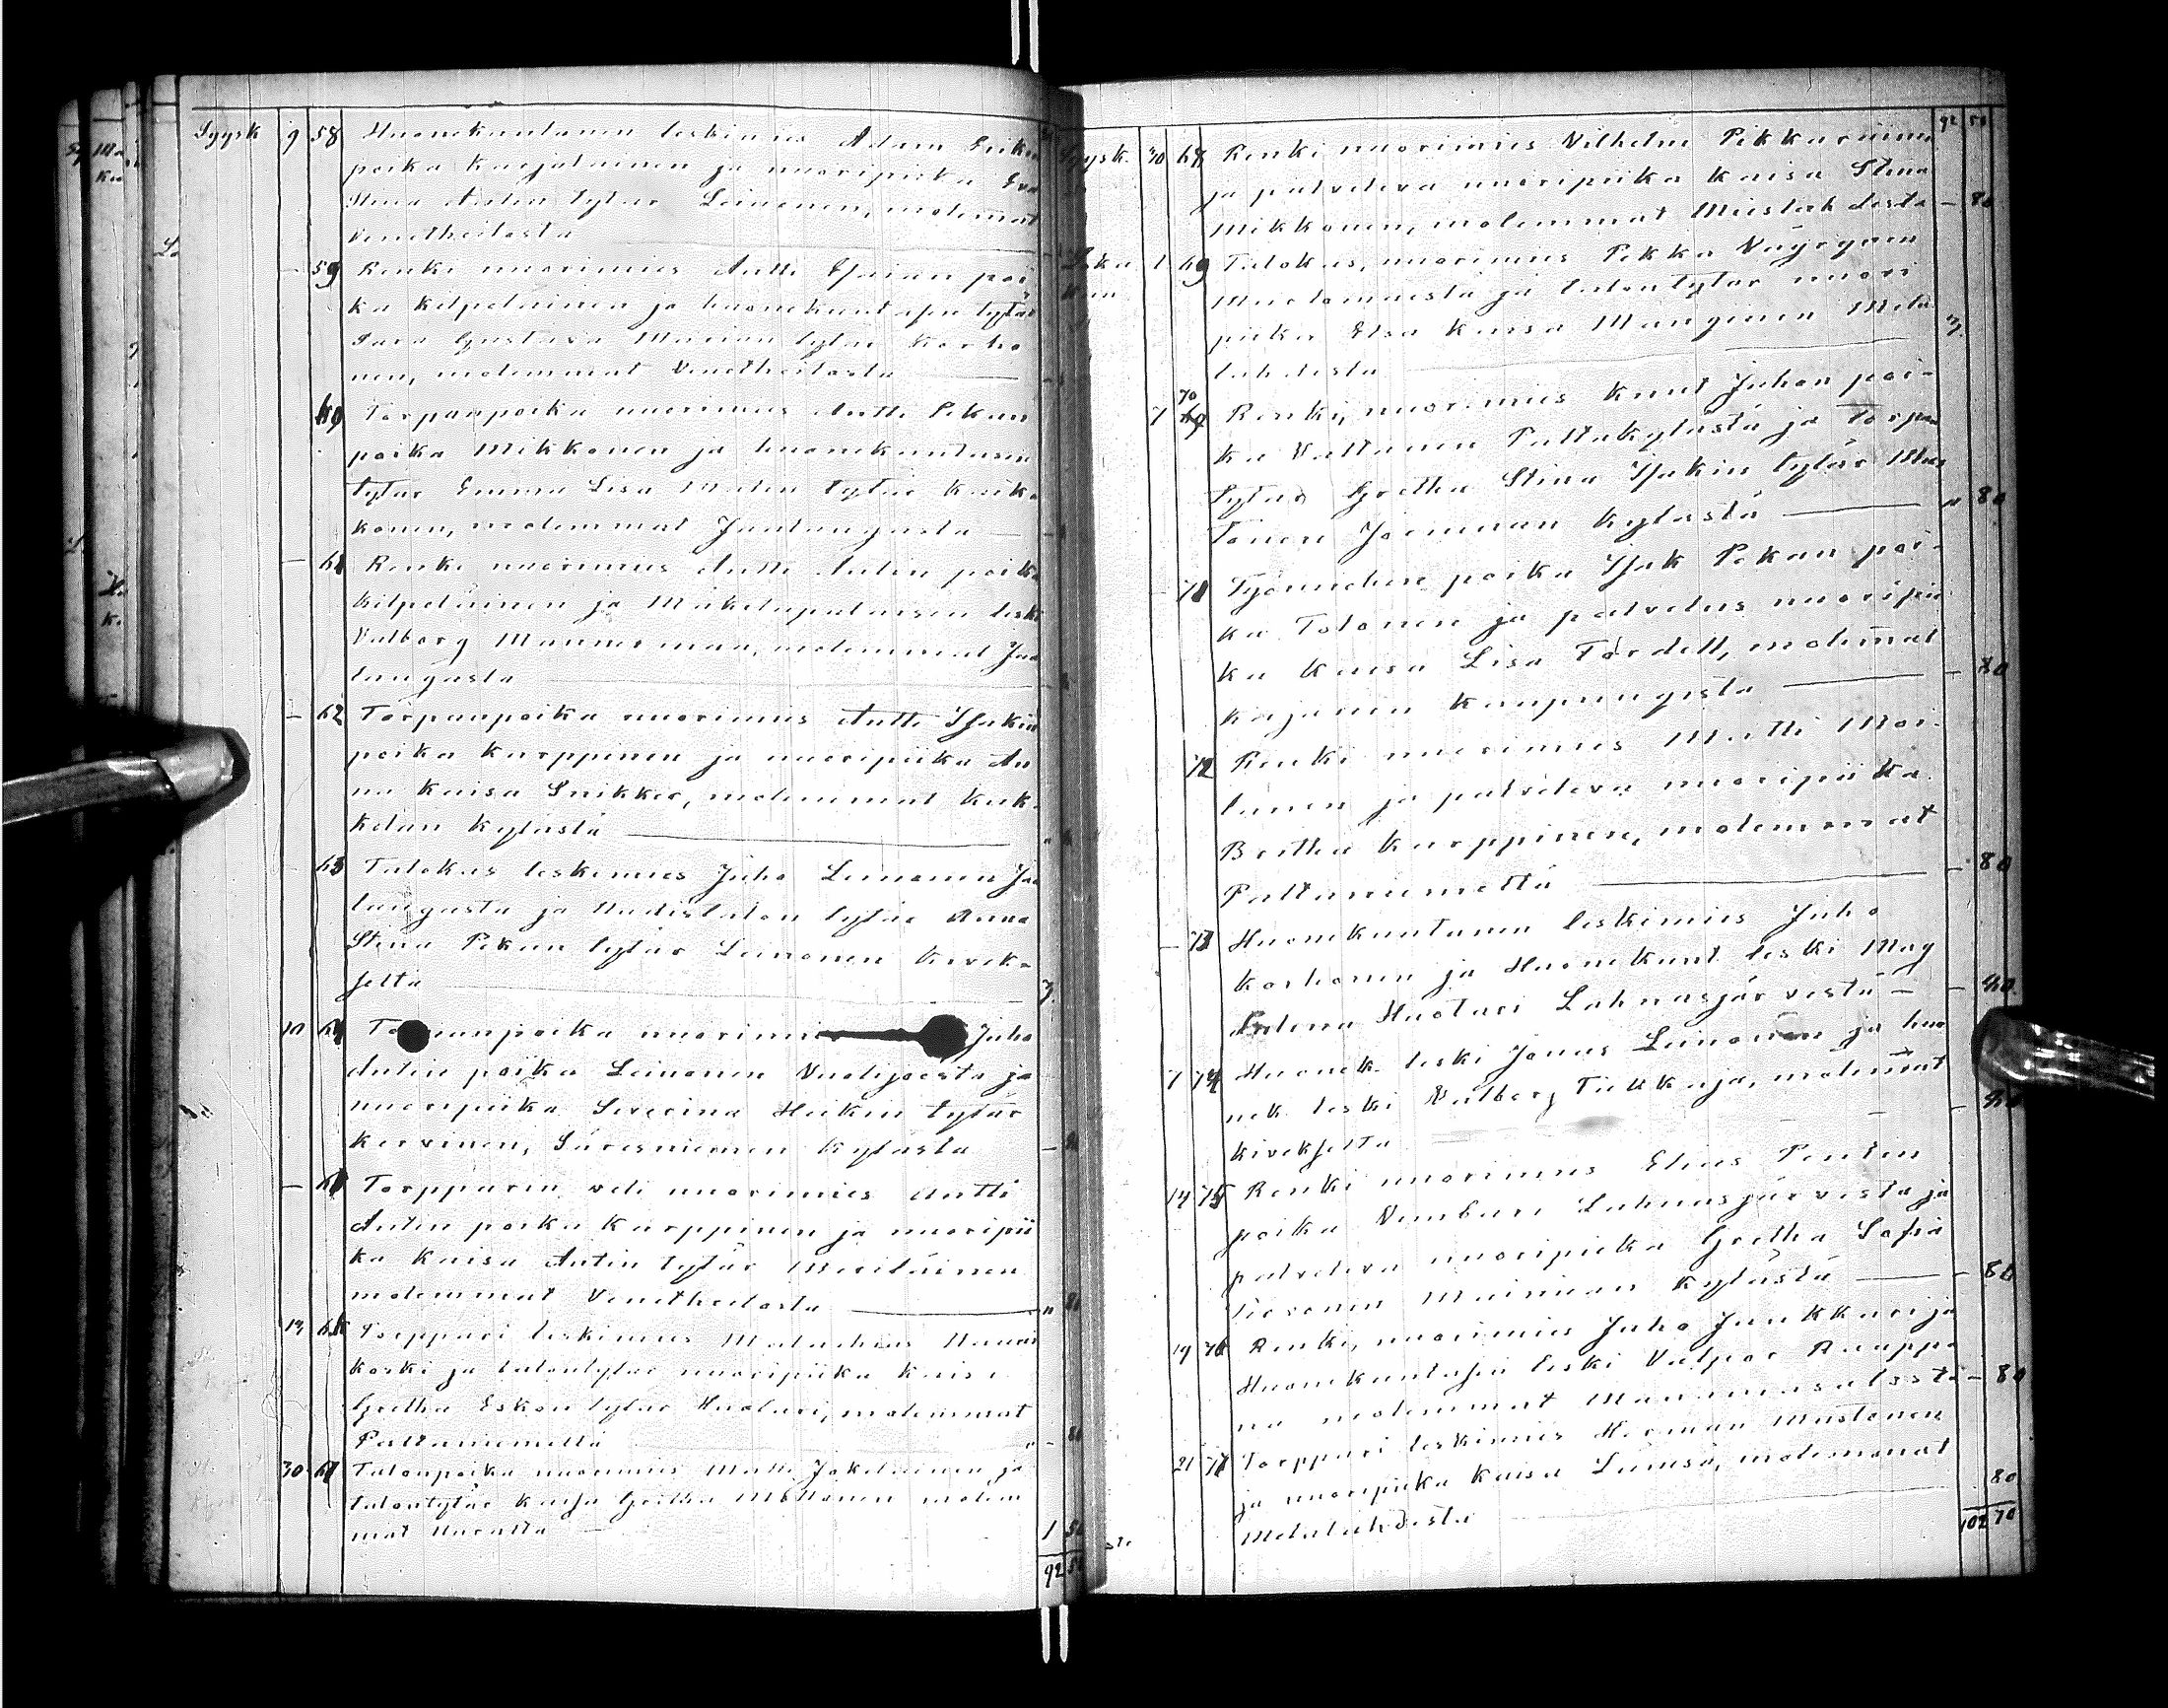 Syysk 9 58 Huonekuntanen leskimies Adam Eriken
poika Karjalainen ja nuoripiika Eva
Stina Antin tytär Leinonen, molemmat
Venetheitosta
— 59 Renki nuorimies Antti Esaian poi
ka Kilpeläinen ja huonekuntasen tytär
Sara Gustava Marian tytär Korho
nen, molemmat Venetheitosta
60 Torpanpoika nuorimies Antti Pekan
poika Mikkonen ja huonekuntasen
tytär Emma Lisa Matin tytär Keik
konen, molemmat Jaalangasta
— 61 Renki nuorimies Antti Antin poika
Kilpeläinen ja Mäkitupalaisen leski
Valborg Mannerman, molemmat Jaa
langasta
— 62 Torpanpoika nuorimies Antti Isakin
poika Karppinen ja nuoripiika An
na Kaisa Snikker, molemmat Kuk-
kolan kylästä
63 Talokas leskimies Juho Leinonen Jaa
langasta ja Uudistalon tytär Anna
Stina Pekan tytär Leinonen Kivek-
seltä 3.
10 64 Torpanpoika nuorimies Juho
Antin poika Leinonen Vuolijoesta ja
nuoripiika Severina Heikin tytär
Kervinen, Säresniemen kylästä
— 65 Torpparin veli nuorimies Antti
Antin poika Karppinen ja nuoripii
ka Kaisa Antin tytär Meriläinen
molemmat Venetheitosta " 80
13 66 Torppari leskimies Matuchias
koski ja talontytär nuoripiika Kaisa
Gretha Eskon tytär Huotari, molemmat
Paltaniemeltä
30 67 Talonpoika nuorimies Matti Jokelainen ja
talontytär Kaisa Gretha Möttönen molem
mat Uuralta 1 50
92 50
92 50
Syysk. 30 68 Renki nuorimies Vilhelm Pikkarainen
ja palveleva nuoripiika Kaisa Stina
Mikkonen, molemmat Mieslahdesta — 80
Loka kuu 1 69 Talokas, nuorimies Pekka Väyrynen
ja talontytär nuori
piika Elsa Kaisa Manginen Mela
lahdesta 3.
7 70 Renki, nuorimies Knut Juhon poi-
ka Valtanen Paltakylästä ja Torpan
tytär Gretha Stina Isakin tytär Mus
tonen Jormuan kylästä " 80
— 71 Työmiehen poika Isak Pekan poi-
ka Tolonen ja palvelus nuoripii
ka Kaisa Lisa Tordell, molemmat
Kajanin kaupungista — 80
72 Renki nuorimies Matti Moi-
lanen ja palveleva nuoripiika
Beetha Karppinen, molemmat
Paltaniemeltä — 80
— 73 Huonekuntanen leskimies Juho
Korhonen ja Huonekunt leski Mag
dalena Huotari Lahnasjärvestä — — 40.
7 74 Huonek. leski Jonas Leinonen ja huo
nek. leski Valborg Tiikkaja, molemmat
Kivekseltä — 40
14 75 Renki nuorimies Elias Pentin
poika Lahnasjärvestä ja
palveleva nuoripiika Gretha Sofia
Tervonen Mainuan kylästä — 80
19 76 Renki, nuorimies Juho Junkkari ja
Huonekuntasen leski Valpor Rauppi
na molemmat Manamansalosta — 80
21 77 Torppari leskimies Herman Mustonen
ja nuoripiika Kaisa Lämsä, molemmat
Melalahdesta 80
102 70